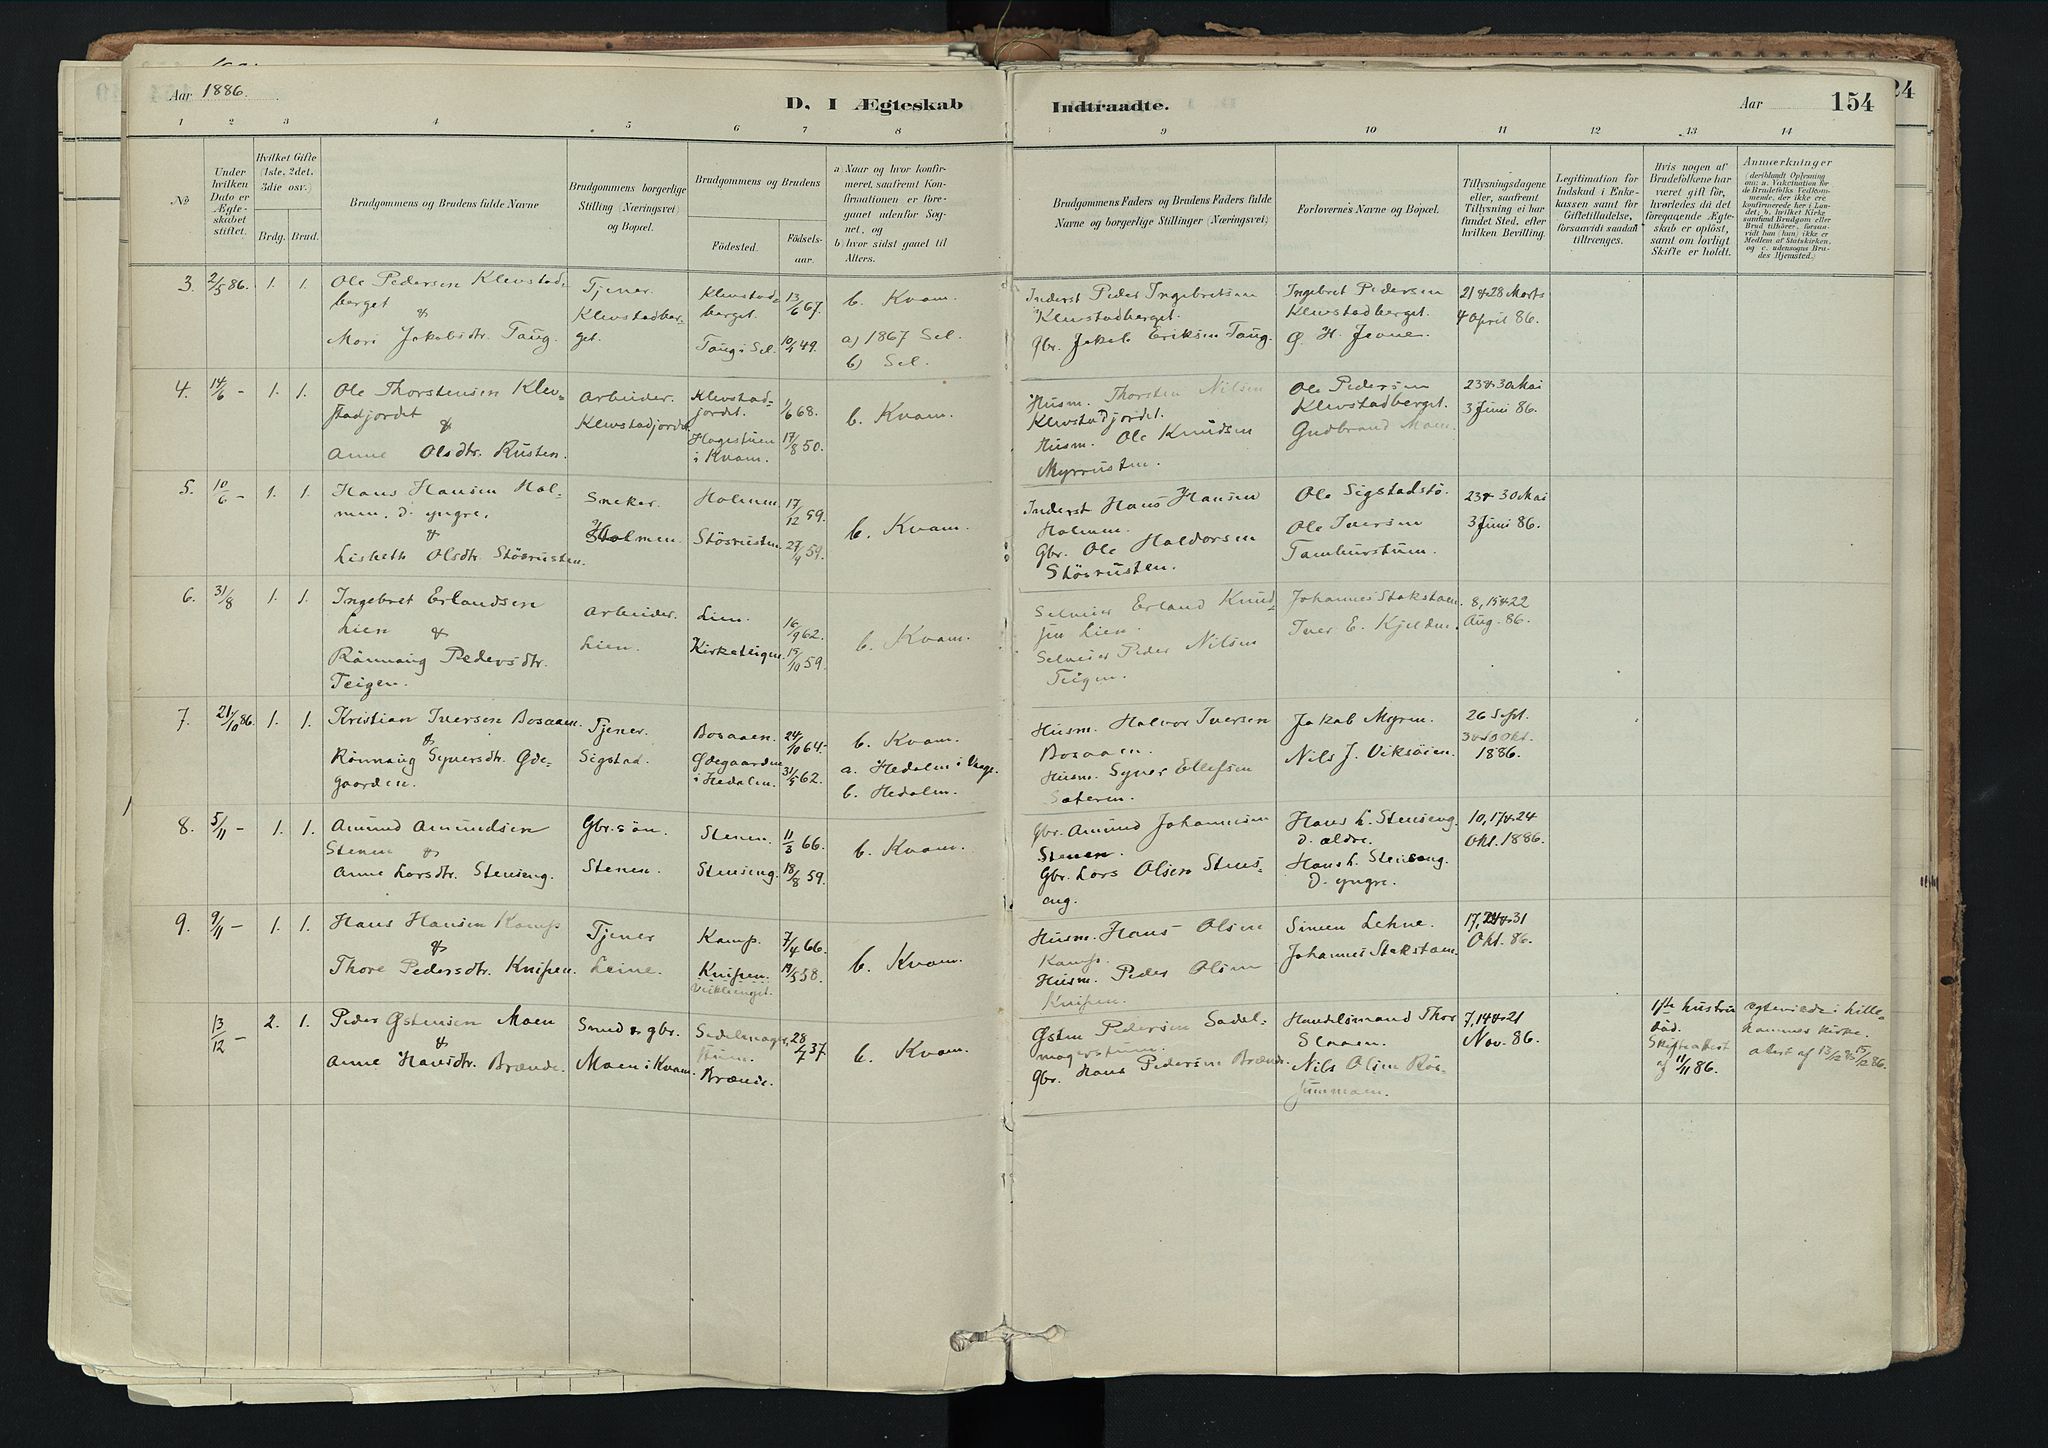 Aar 1886.
D. I Ægteskab Indtraadte.
Aar
154
24
1 2 3 4 5 6 7 8 9 10 11 12 13 14
No
Under hvilken Dato er Ægteskabet stiftet.
Hvilket Gifte (1ste, 2det, 3die osv.)
Brdg. Brud.
Brudgommens og Brudens fulde Navne
Brudgommens borgerlige Stilling (Næringsvei) og Bopæl.
Brudgommens og Brudens
Fødested.
Fødselsaar.
a) Naar og hvor konfirmeret, saafremt Konfirmationen er foregaaet udenfor Sognet, og
b) hvor sidst gaaet til Alters.
Brudgommens Faders og Brudens Faders fulde Navne og borgerlige Stillinger (Næringsvei)
Forlovernes Navne og Bopæl.
Tillysningsdagene eller, saafremt Tillysning ei har fundet Sted, efter hvilken Bevilling.
Legitimation for Indskud i Enkekassen samt for Giftetilladelse, forsaavidt saadan tiltrænges.
Hvis nogen af Brudefolkene har været gift før, hvorledes da det foregaaende Ægteskab er opløst, samt om lovligt Skifte er holdt.
Anmærkninger
(deriblandt Oplysning om: a. Vakcination for de Brudefolks Vedkommende, der ikke ere konfirmerede her i Landet; b. hvilket Kirkesamfund Brudgom eller Brud tilhører, forsaavidt han (hun) ikke er Medlem af Statskirken, og c. udensogns Brudes Hjemsted.)
3. 2/5 86. 1. 1. Ole Pedersen Klevstadberget
&
Mari Jakobsdtr. Taug.
Tjener.
Klevstadberget.
Klevstadberget. 13/6 67.
Taug i Sel. 10/4 49.
b. Kvam.
a) 1867 Sel.
b) Sel.
Inderst Peder Ingebretsen
Klevstadberget
Gbr. Jakob Eriksen Taug.
Ingebret Pedersen
Klevstadberget.
21 & 28 Marts
4 April 86.
4. 14/6 - 1. 1. Ole Thorstensen Klevstadjordet
&
Anne Olsdtr. Rusten.
Arbeider.
Klevstadjordet
Klevstadjordet. 1/6 68.
Hagestuen i Kvam. 17/8 50.
b. Kvam.
Husm. Thorsten Nilsen
Klevstadjordet.
Husm. Ole Knudsen
Myrrusten.
Ole Pedersen
Klevstadberget.
Gudbrand Moen.
23 & 30 Mai
3 Juni 86.
5. 10/6 - 1. 1. Hans Hansen Holmen. d. yngre.
&
Lisbeth Olsdtr. Stösrusten.
Sneker.
Holmen.
Holmen 17/12 59.
Stösrusten. 27/4 59.
b. Kvam.
Inderst Hans Hansen
Holmen.
Gbr. Ole Haldorsen
Stösrusten.
Ole Sigstadstö.
Ole Iversen
23 & 30 Mai
3 Juni 86.
6. 31/8 1. 1. Ingebret Erlandsen
Lien &
Rönnaug Pedersdtr.
Teigen.
Arbeider.
Lien.
Lien. 16/9 62.
Kirketeigen. 15/10 59.
b. Kvam.
Selveier Erland Knudsen Lien.
Selveier Peder Nilsen
Teigen.
Johannes Stakstøen.
Iver E. Kjelden.
8, 15 & 22
Aug. 86.
7. 21/10 86. 1. 1. Kristian Iversen Bosaaen.
&
Rönnaug Syversdtr. Ødegaarden.
Tjener.
Sigstad.
Bosaaen. 24/10 64.
Ødegaarden i Hedalen. 31/5 62.
b. Kvam.
a. Hedalen i Vaage.
b. Hedalen.
Husm. Halvor Iversen
Bosaaen.
Husm. Syver Ellefsen
Sæteren.
Jakob Myren.
Nils J. Viksøien.
26 Sept.
1886.
8. 5/11 - 1. 1. Amund Amundsen
Stenen &
Anne Larsdtr. Stenseng.
Gbr.søn.
Stenen.
Stenen. 11/3 66.
Stenseng. 18/8 59.
b. Kvam.
Gbr. Amund Johannesen
Stenen.
Gbr. Lars Olsen Stenseng.
Hans L. Stenseng
d. ældre.
Hans L. Stenseng
d. yngre.
10, 17 & 24
Okt. 1886.
9. 9/11 - 1. 1. Hans Hansen Kamp
&
Thore Pedersdtr. Knipen.
Tjener
Leine.
Kamp. 7/4 66.
Knipen. 19/5 58.
b. Kvam.
Husm. Hans Olsen
Kamp.
Husm. Peder Olsen
Knipen.
Simen Lehne.
Johannes Stakstøen.
17, 24 & 31
Okt. 86.
13/12 - 2. 1. Peder Østensen Moen
&
Anne Hansdtr. Brænde.
Smed & gbr.
Moen i Kvam.
28/7 37.
Brænde.
b. Kvam.
Østen Pedersen Sadelmagerstuen.
Gbr. Hans Pedersen Brænde.
Handelsmand Thor
Nils Olsen
7, 14 & 21
Nov. 86.
1ste hustru
död.
Skifteattest
af 11/11 86.
ægteviede i Lillehammer kirke.
attest af 13/12 15/12 86.